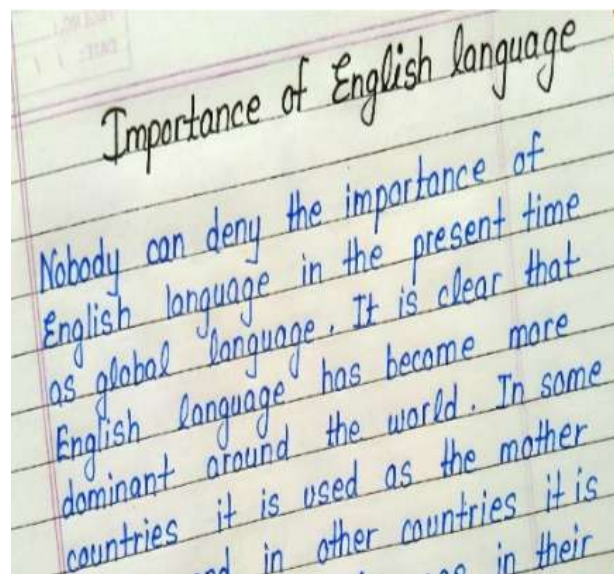 Importance of English language
Nobody can deny the importance of
English language in the present time
as global language. It is clear that
English language has become more
dominant around the world. In some
countries it is used as the mother
in other countries it is
in their